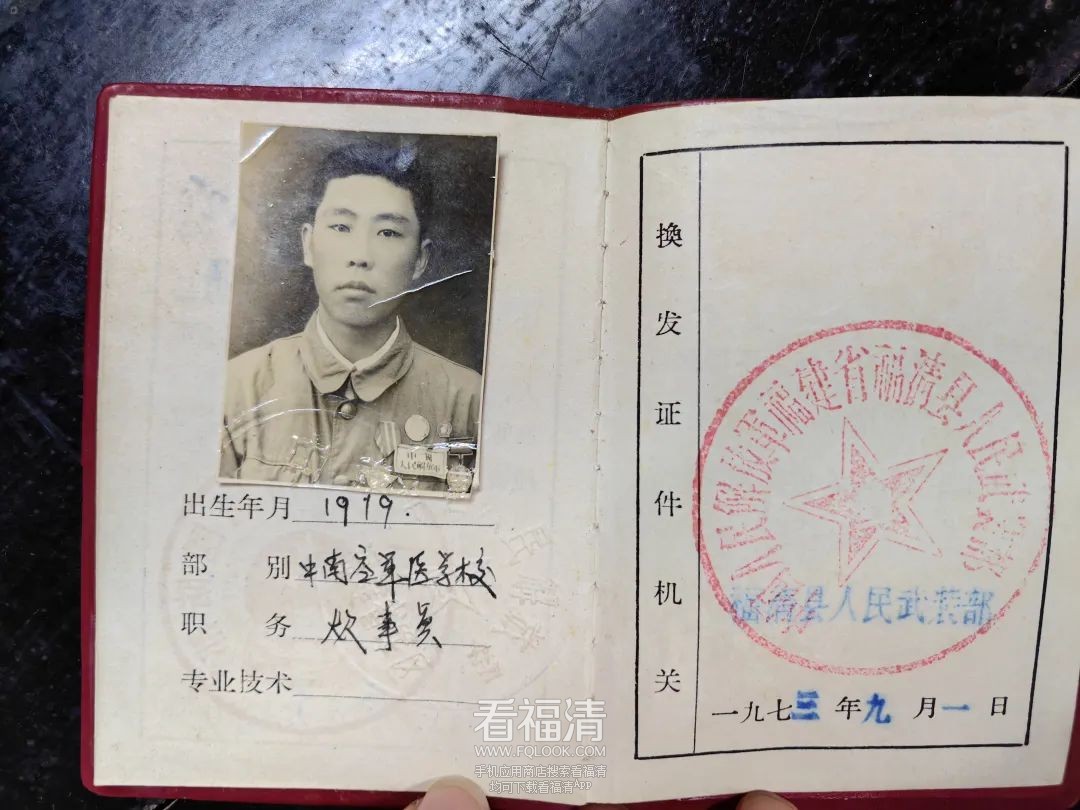 中国
人民解放军
出生年月 1919.
部别 中南空军医学校
职务 炊事员
专业技术
换发证件机关
中国人民解放军福建省福清县人民武装部
福清县人民武装部
一九七三年九月一日
看福清
WWW.FQLOOK.COM
手机应用商店搜索看福清
均可下载看福清APP